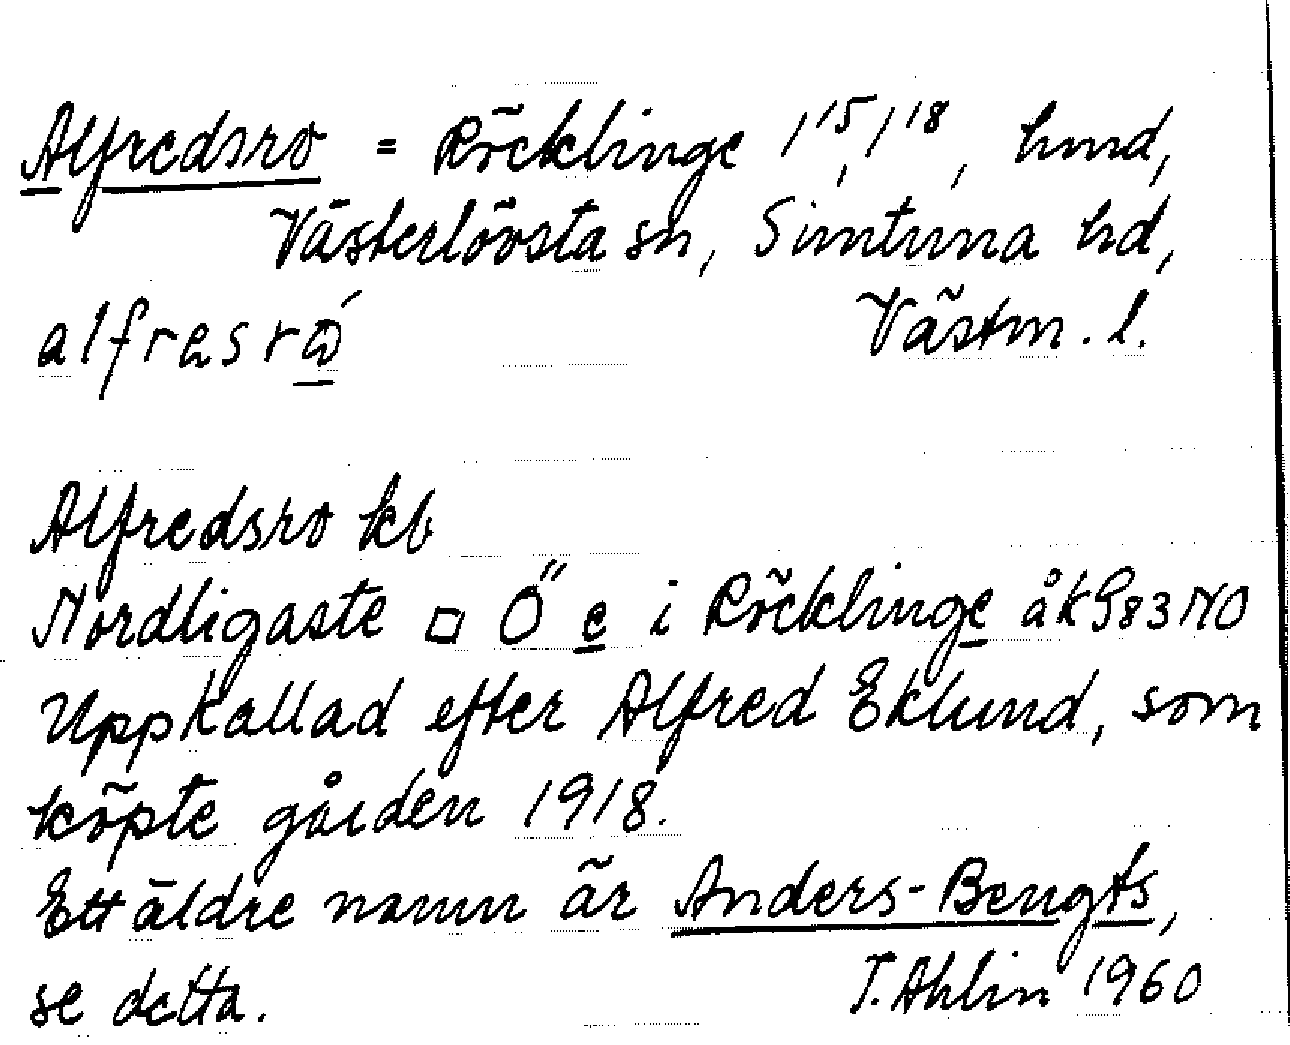 Alfredsro = Röcklinge 1¹⁵, 1¹⁸, hmd,
Västerlövsta sn, Simtuna hd,
Västm. l.
alfresrώ̲
Alfredsro kb
Nordligaste □ Ö″ e i Röcklinge åk 983 NO
Uppkallad efter Alfred Eklund, som
köpte gården 1918.
Ett äldre namn är Anders-Bengts,
se detta.
T. Ahlin 1960